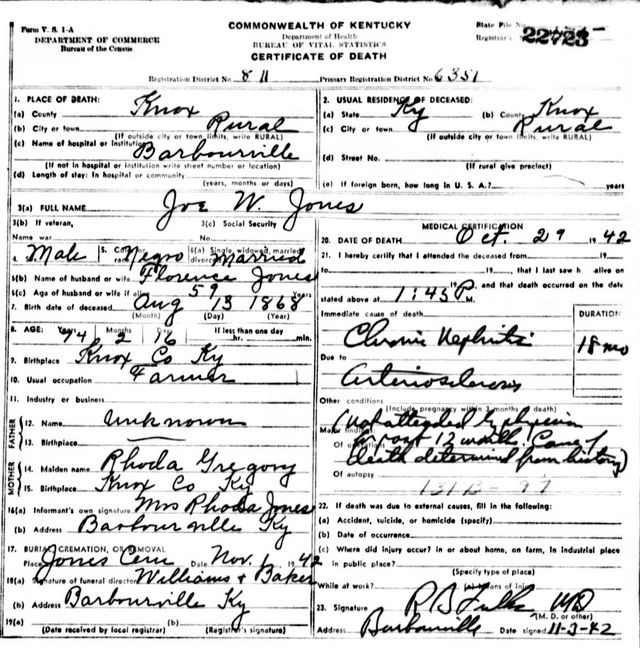 Form V. S. 1-A
DEPARTMENT OF COMMERCE
Bureau of the Census
COMMONWEALTH OF KENTUCKY
Department of Health
BUREAU OF VITAL STATISTICS
CERTIFICATE OF DEATH
State File No.
Registrar's 22723
Registration District No. 811
Primary Registration District No. 6351
1. PLACE OF DEATH:
(a) County Knox
(b) City or town Rural
(If outside city or town limits, write RURAL)
(c) Name of hospital or institution Barbourville
(If not in hospital or institution write street number or location)
(d) Length of stay: In hospital or community
(years, months or days)
2. USUAL RESIDENCE OF DECEASED:
(a) State Ky (b) County Knox
(c) City or town Rural
(If outside city or town limits, write RURAL)
(d) Street No.
(If rural give precinct)
(e) If foreign born, how long in U. S. A.? years
3(a) FULL NAME Joe W. Jones
3(b) If veteran, Name war
3(c) Social Security No.
4. Male 5. Color or race Negro 6(a) Single, widowed, married, divorced Married
6(b) Name of husband or wife Florence Jones
6(c) Age of husband or wife if alive 59 Years
7. Birth date of deceased Aug 13 1868
(Month) (Day) (Year)
8. AGE: Years 74 Months 2 Days 16 If less than one day hr. min.
9. Birthplace Knox Co Ky
10. Usual occupation Farmer
11. Industry or business
FATHER
12. Name Unknown
13. Birthplace
MOTHER
14. Maiden name Rhoda Gregory
15. Birthplace Knox Co Ky
16(a) Informant's own signature Mrs Rhoda Jones
(b) Address Barbourville Ky
17. BURIAL, CREMATION, OR REMOVAL
Place Jones Cem Date Nov. 1, 1942
18(a) Signature of funeral director Williams & Baker
(b) Address Barbourville Ky
19(a) (b)
(Date received by local registrar) (Registrar's signature)
MEDICAL CERTIFICATION
20. DATE OF DEATH Oct. 29 1942
21. I hereby certify that I attended the deceased from 19
to 19, that I last saw h alive on
19, and that death occurred on the date
stated above at 1:45 P.m.
Immediate cause of death DURATION
Chronic Nephritis 18 mo
Due to
Arteriosclerosis
Other conditions
(Include pregnancy within 3 months of death)
(Not attended by physician
Major findings:
Of operations for past 12 months. Cause of
death determined from history)
Of autopsy
131B-97
22. If death was due to external causes, fill in the following:
(a) Accident, suicide, or homicide (specify)
(b) Date of occurrence
(c) Where did injury occur? in or about home, on farm, in industrial place
in public place?
(Specify type of place)
While at work? (e) Means of injury
23. Signature R B Fulks MD
(M. D. or other)
Address Barbourville Date signed 11-3-42